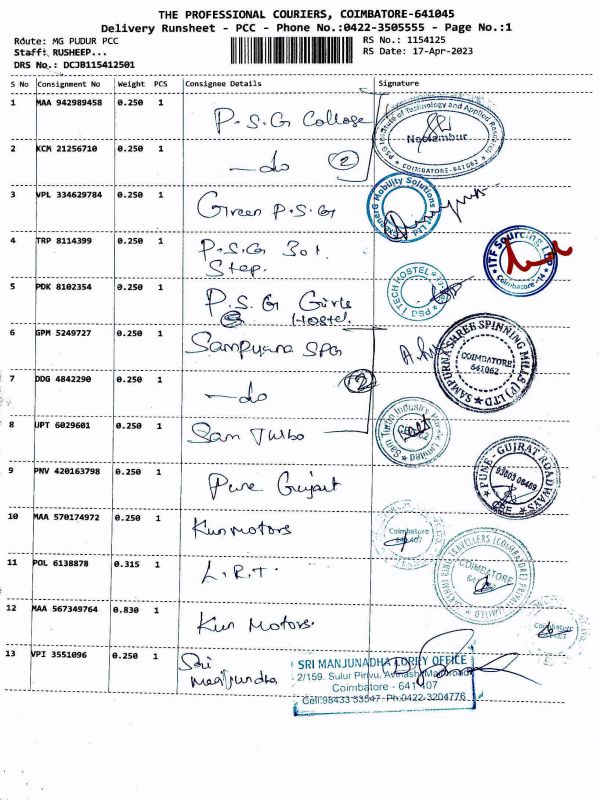 THE PROFESSIONAL COURIERS, COIMBATORE-641045
Delivery Runsheet - PCC - Phone No.:0422-3505555 - Page No.:1
Route: MG PUDUR PCC
RS No.: 1154125
Staff: RUSHEEP...
RS Date: 17-Apr-2023
DRS No.: DCJB115412501
S No Consignment No Weight PCS Consignee Details Signature
1 MAA 942989458 0.250 1 P.S.G College
PSG Institute of Technology and Applied Research
Neelambur
COIMBATORE-641062
2 KCM 21256710 0.250 1 —do (2)
3 VPL 334629784 0.250 1 Green P.S.G
Mobility Solutions Pvt Ltd
4 TRP 8114399 0.250 1 P.S.G
Step.
ITF Sourcing
Coimbatore-14
5 PDK 8102354 0.250 1 P.S.G Girls
Hostel
PSG TECH HOSTEL
6 GPM 5249727 0.250 1 Sampurna SPG
SAMPURNASHREE SPINNING MILLS (P) LTD
COIMBATORE
641062
7 DDG 4842290 0.250 1 —do (2)
8 UPT 6029601 0.250 1 Sam Turbo
Sam Turbo Industry Private Limited
9 PNV 420163798 0.250 1 Pune Gujarat
PUNE - GUJRAT ROADWAYS
CBE
10 MAA 570174972 0.250 1 Kun Motors
Coimbatore
11 POL 6138878 0.315 1 L.R.T.
TRAVELLERS (COIMBATORE) PRIVATE LIMITED
COIMBATORE
12 MAA 567349764 0.830 1 Kun Motors.
Coimbatore
13 VPI 3551096 0.250 1 Sri
Manjundha
SRI MANJUNADHA LORRY OFFICE
2/159. Sulur Pirivu, Avinashi Main Road
Coimbatore - 641 407
Cell:98433 33547 Ph:0422-3204776